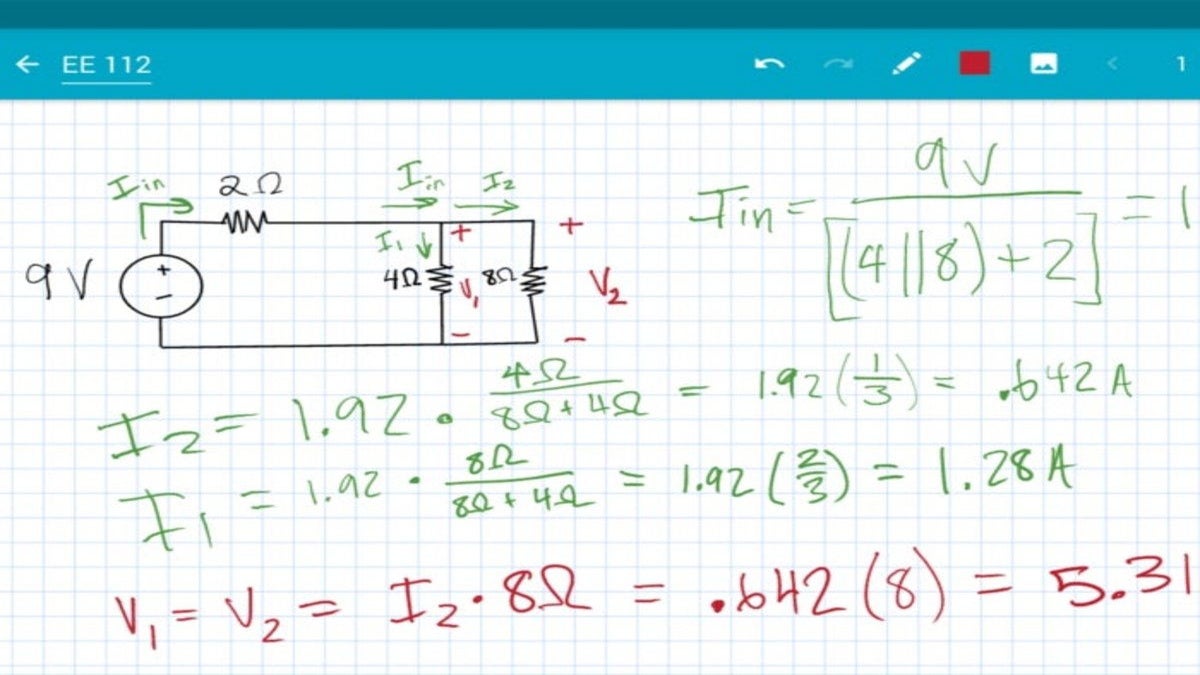 EE 112
1
Iin 2Ω Iin I2
9V + − I1 4Ω + V1 − 8Ω + V2 −
Iin = 9V / [(4||8)+2] = 1
I2 = 1.92 · 4Ω / (8Ω + 4Ω) = 1.92 (1/3) = .642 A
I1 = 1.92 · 8Ω / (8Ω + 4Ω) = 1.92 (2/3) = 1.28 A
V1 = V2 = I2 · 8Ω = .642 (8) = 5.31